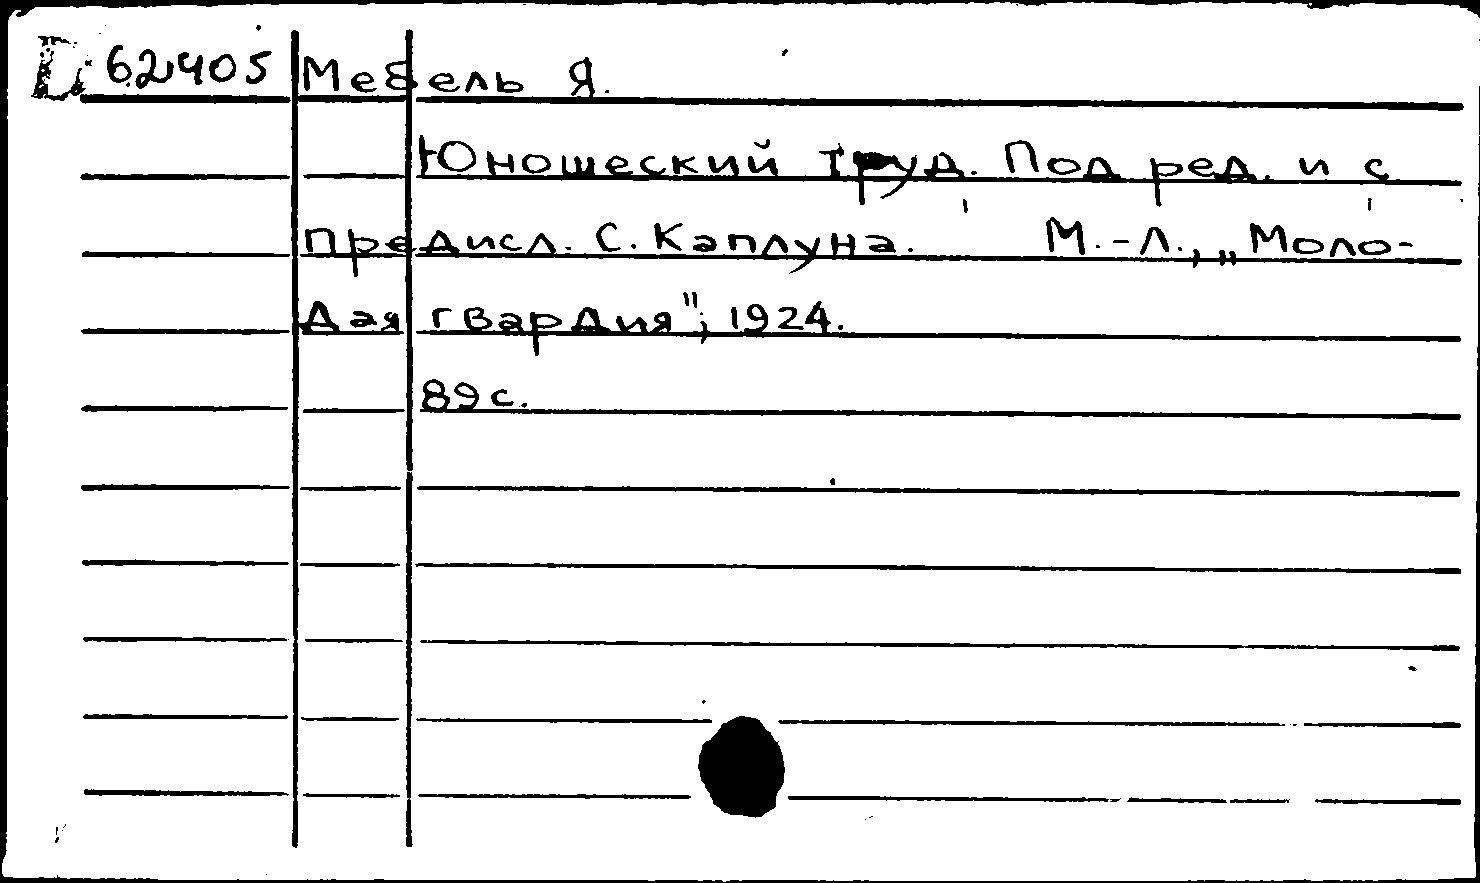 D 62405 Мебель Я.
Юношеский труд. Под ред. и с
предисл. С. Каплуна. М.-Л., „Моло-
дая гвардия", 1924.
89 с.